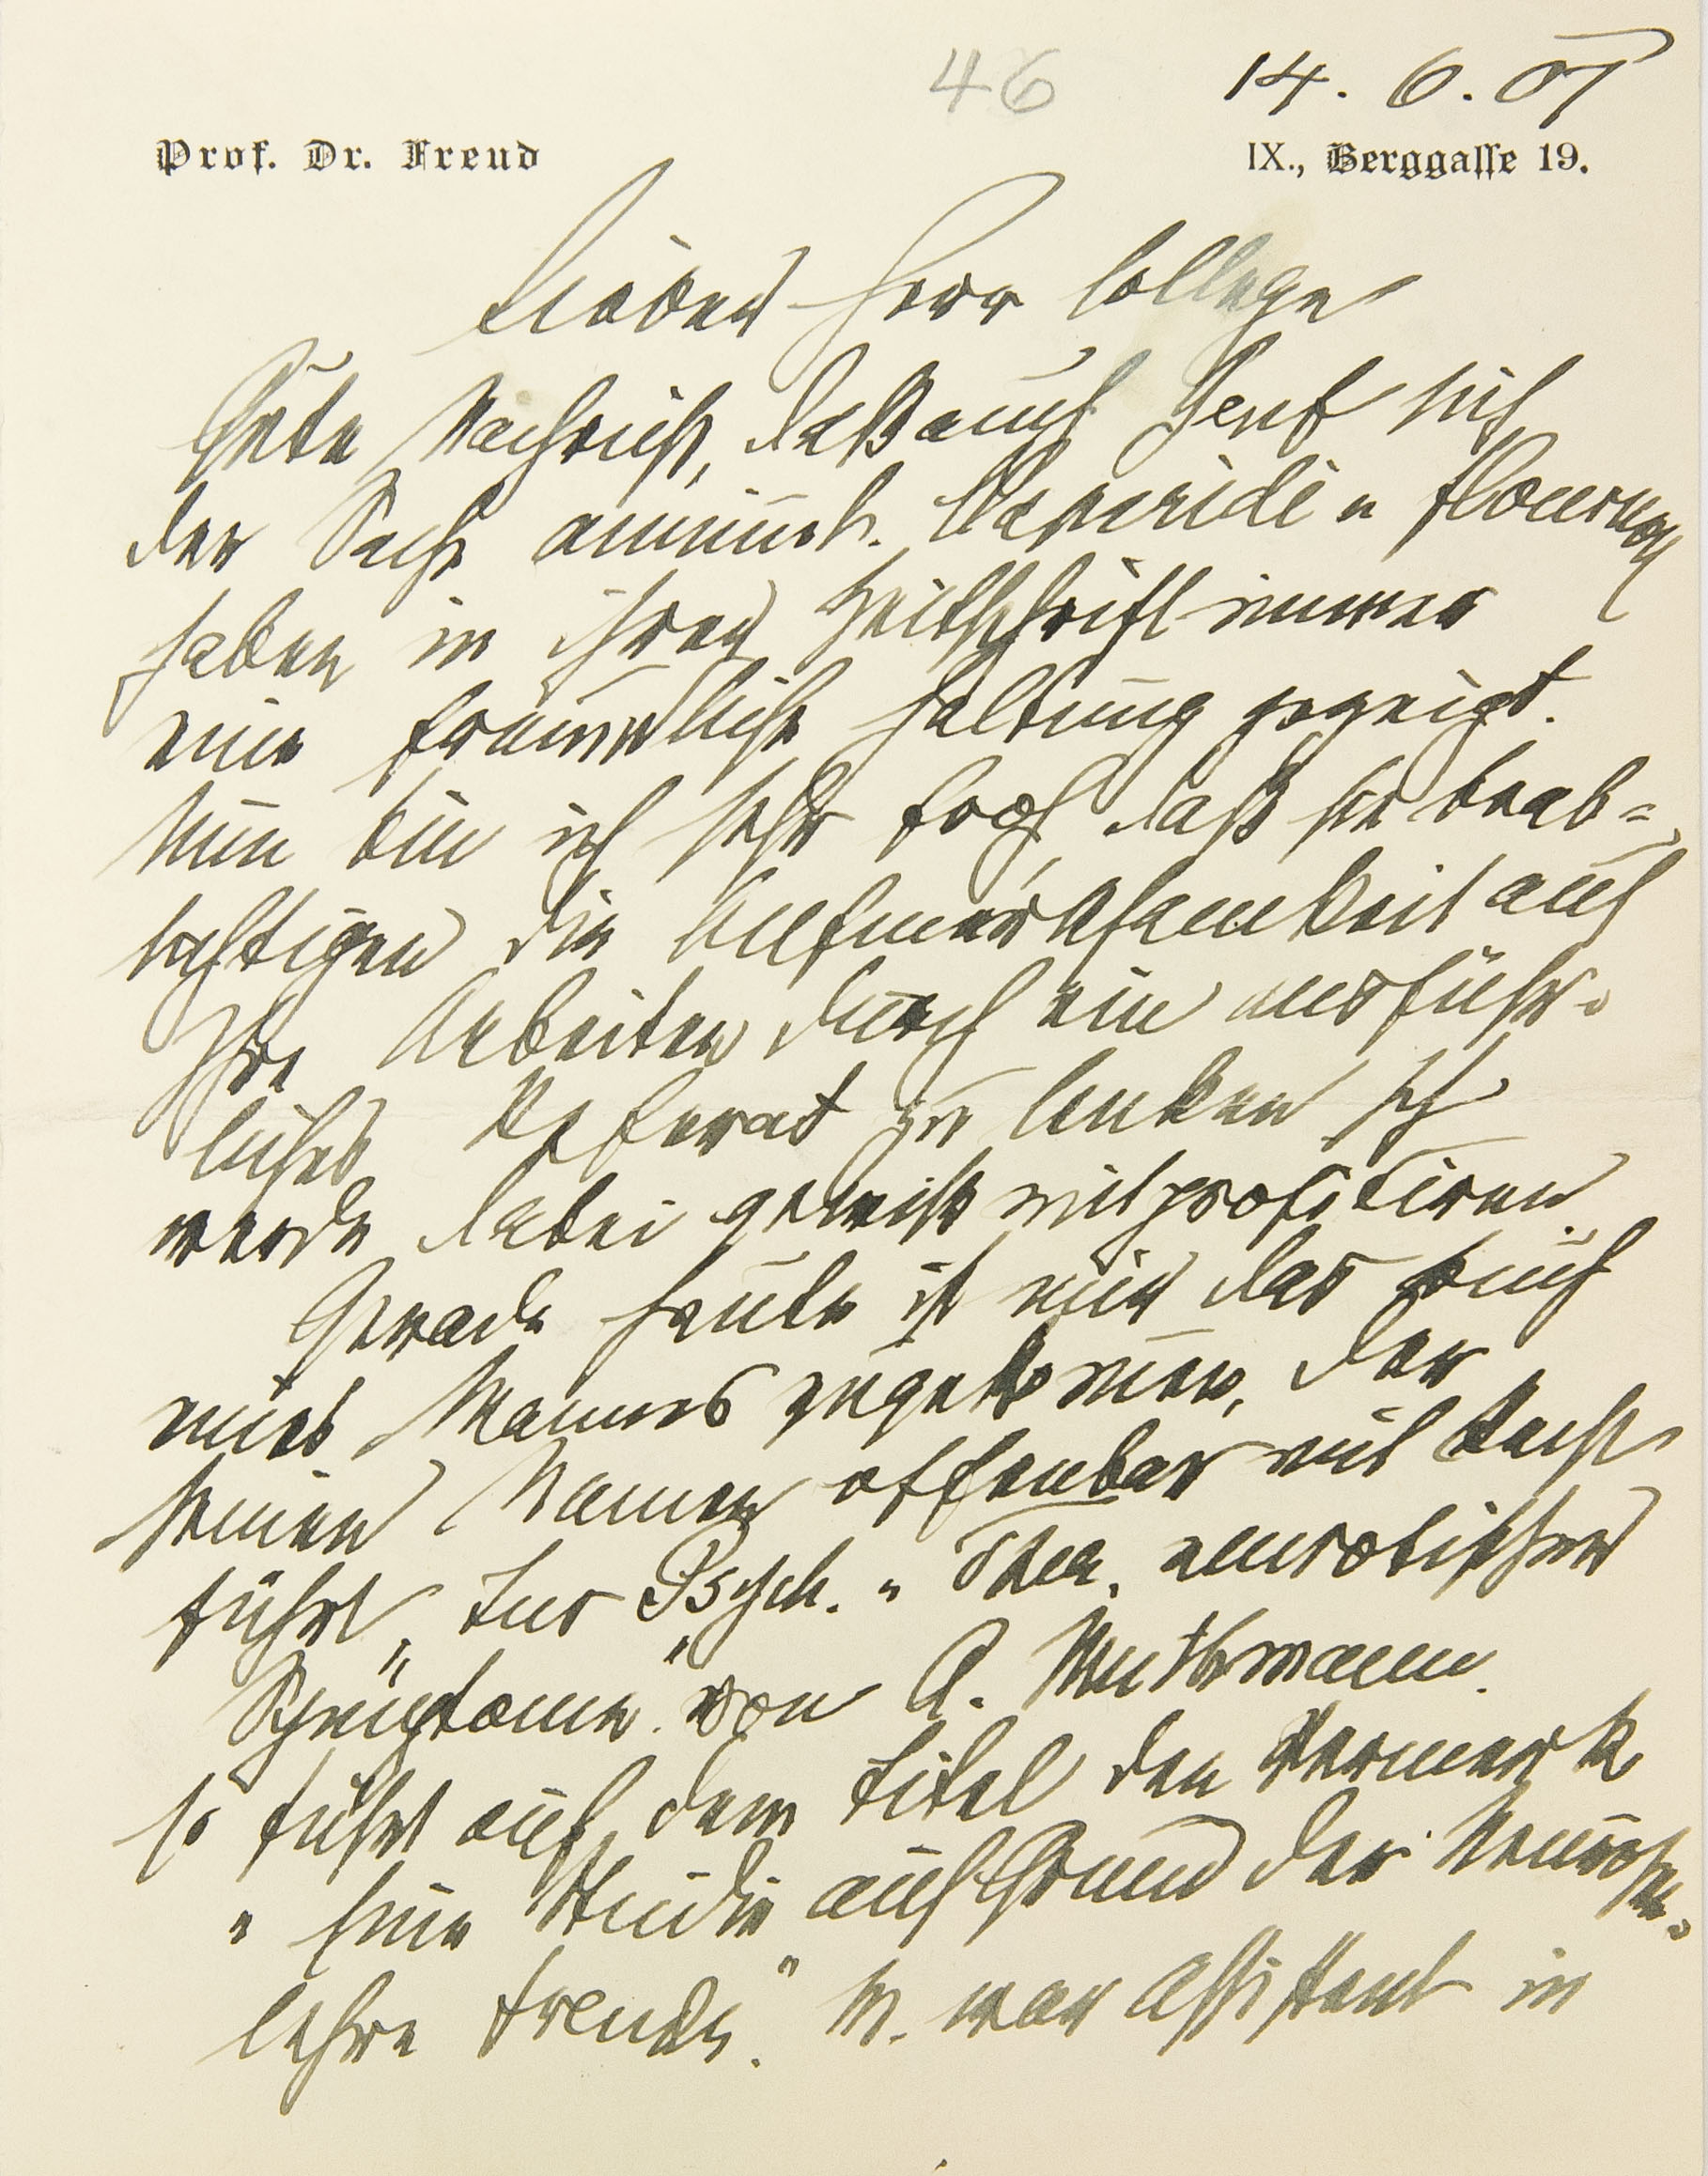 46
14. 6. 07
Prof. Dr. Freud
IX., Berggasse 19.
Lieber Herr College
Gute Nachricht, daß auch Genf sich
der Sache annimt. Claparède u Flournoy
haben in ihrer Zeitschrift immer
eine freundliche Haltung gezeigt.
Nun bin ich sehr froh, daß sie beab=
sichtigen die Aufmerksamkeit auf
Ihre Arbeiten durch ein ausführ-
liches Referat zu lenken Ich
werde dabei gewiß mitprofitiren.
Gerade heute ist mir das Buch
eines Mannes zugekommen, der
seinen Namen offenbar mit Recht
führt, „Zur Psych. u Ther. neurotischer
Symptome" von A. Muthmann.
Es führt auf dem Titel den Vermerk
„Eine Studie auf Grund der Neurosen-
lehre Freuds." M. war Assistent in